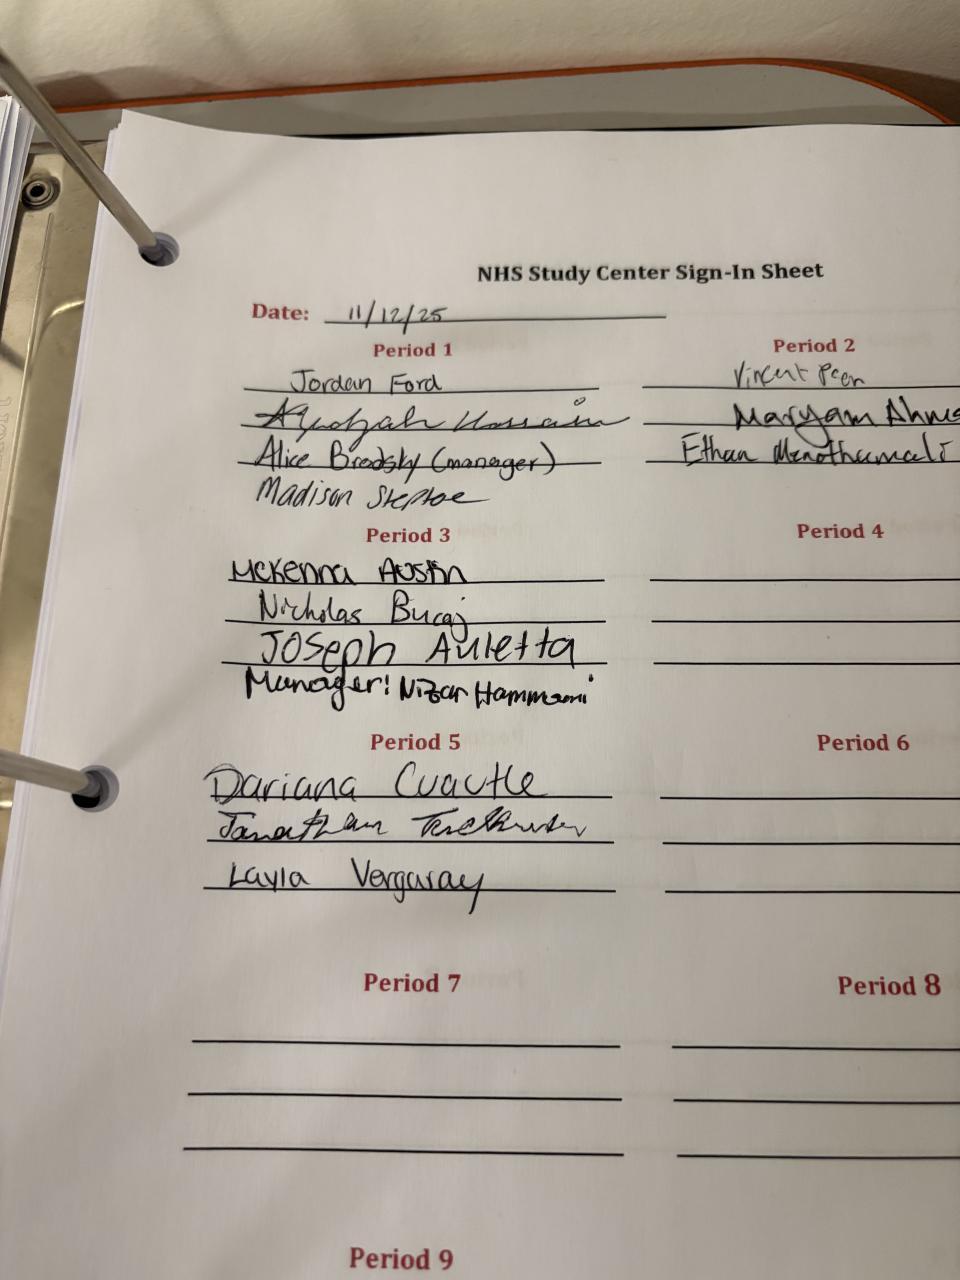 NHS Study Center Sign-In Sheet
Date: 11/12/25
Period 1
Jordan Ford
Hossain
Alice Brodsky (manager)
Madison Steptoe
Period 2
Vincent
Maryam
Ethan
Period 3
McKenna Austin
Nicholas Bucaj
Joseph Auletta
Manager: Nizar Hammami
Period 4
Period 5
Dariana Cuautle
Layla Vergaray
Period 6
Period 7
Period 8
Period 9